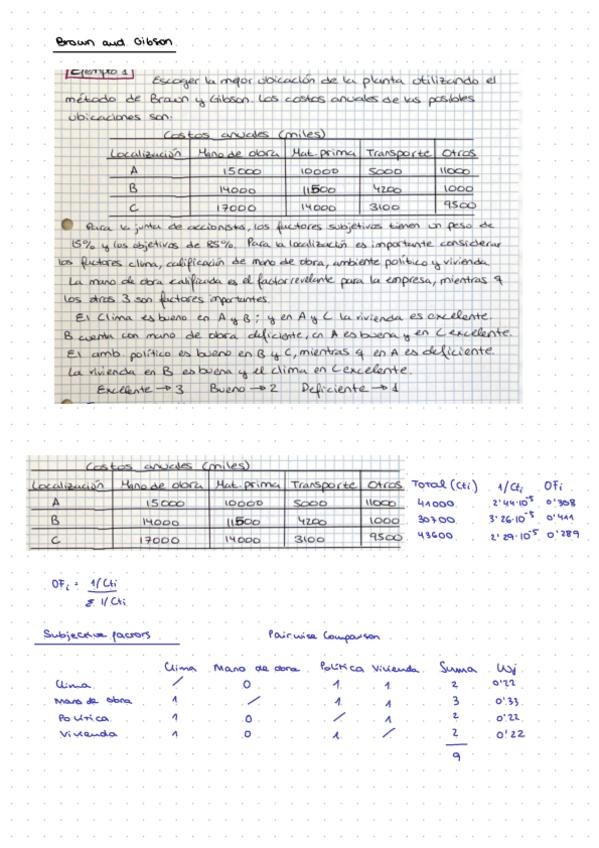 Brown and Gibson
Ejemplo 1
Escoger la mejor ubicación de la planta utilizando el
método de Brawn y Gibson. Los costos anuales de las posibles
ubicaciones son:
Costos anuales (miles)
Localización Mano de obra Mat. prima Transporte Otros
A 15000 10000 5000 11000
B 14000 11500 4200 1000
C 17000 14000 3100 9500
Para la junta de accionista, los factores subjetivos tienen un peso de
15% y los objetivos de 85%. Para la localización es importante considerar
los factores clima, calificación de mano de obra, ambiente político y vivienda.
La mano de obra calificada es el factor relevante para la empresa, mientras q
los otros 3 son factores importantes.
El Clima es bueno en A y B; y en A y C la vivienda es excelente.
B cuenta con mano de obra deficiente, en A es buena y en C excelente.
El amb. político es bueno en B y C, mientras q en A es deficiente.
La vivienda en B es buena y el clima en C excelente.
Excelente → 3 Bueno → 2 Deficiente → 1
Costos anuales (miles)
Localización Mano de obra Mat. prima Transporte Otros Total (Cti) 1/Cti OFi
A 15000 10000 5000 11000 41000 2'44·10⁻⁵ 0'308
B 14000 11500 4200 1000 30700 3'26·10⁻⁵ 0'411
C 17000 14000 3100 9500 43600 2'29·10⁻⁵ 0'289
OFi = 1/Cti
Σ 1/Cti
Subjective factors Pairwise Comparison
Clima Mano de obra Política Vivienda Suma Wj
Clima / 0 1 1 2 0'22
Mano de obra 1 / 1 1 3 0'33
Política 1 0 / 1 2 0'22
Vivienda 1 0 1 / 2 0'22
9